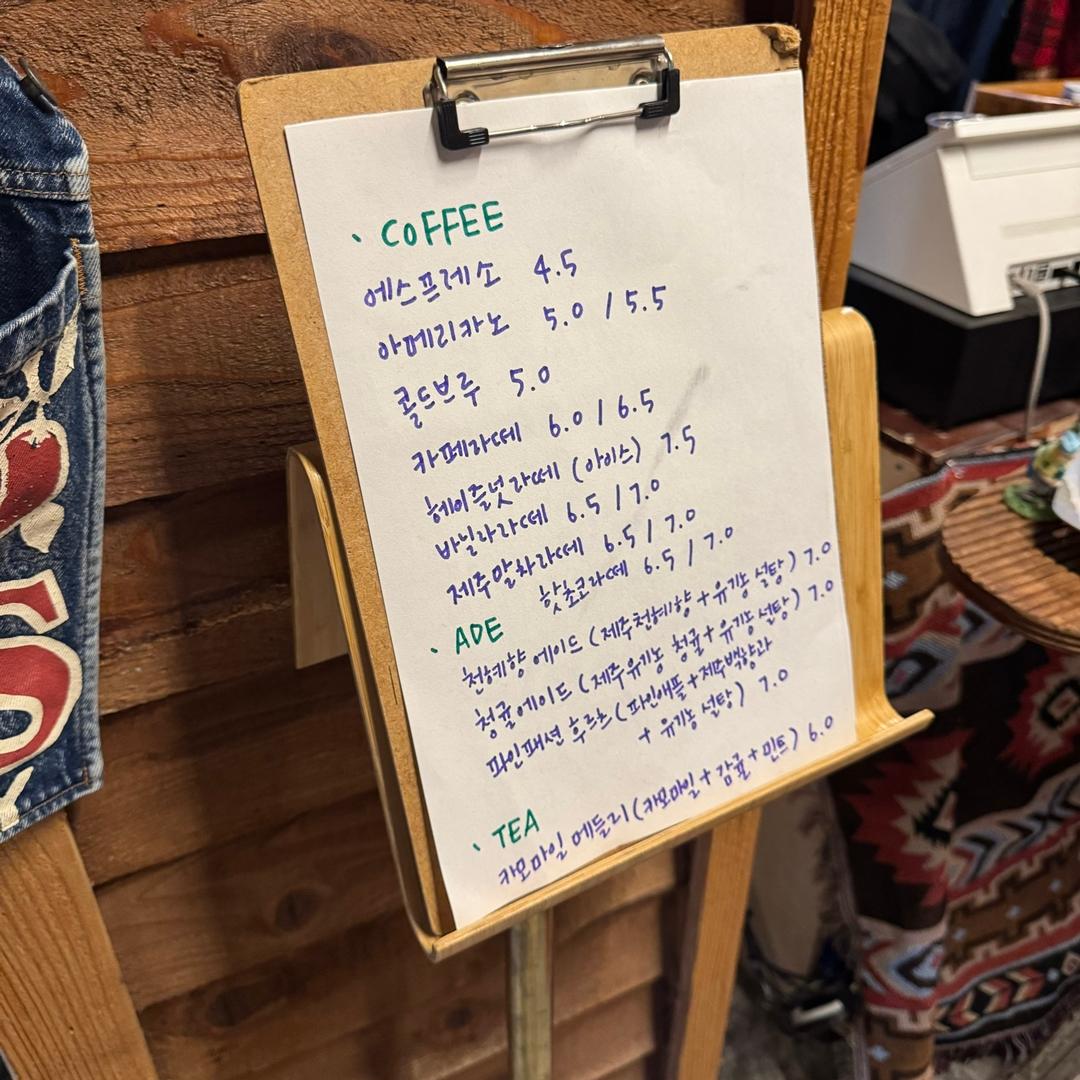 · COFFEE
에스프레소 4.5
아메리카노 5.0 / 5.5
콜드브루 5.0
카페라떼 6.0 / 6.5
헤이즐넛라떼 (아이스) 7.5
바닐라라떼 6.5 / 7.0
제주말차라떼 6.5 / 7.0
핫초코라떼 6.5 / 7.0
· ADE
천혜향 에이드 (제주천혜향 + 유기농 설탕) 7.0
청귤에이드 (제주유기농 청귤 + 유기농설탕) 7.0
파인패션 후르츠 (파인애플 + 제주백향과
+ 유기농 설탕) 7.0
· TEA
카모마일 메들리 (카모마일 + 감귤 + 민트) 6.0